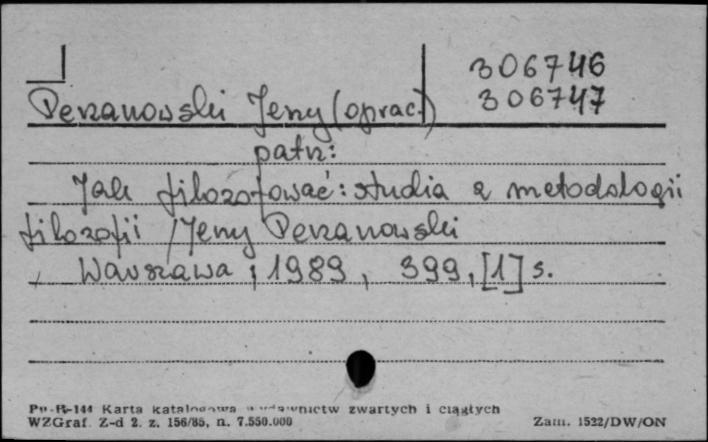 306746
Perzanowski Jerzy (oprac.) 306747
patrz:
Jak filozofować: studia z metodologii
filozofii / Jerzy Perzanowski
Warszawa, 1989, 399, [1] s.
Pu-B-144 Karta katalogowa wydawnictw zwartych i ciągłych
WZGraf. Z-d 2. z. 156/85, n. 7.550.000 Zam. 1522/DW/ON